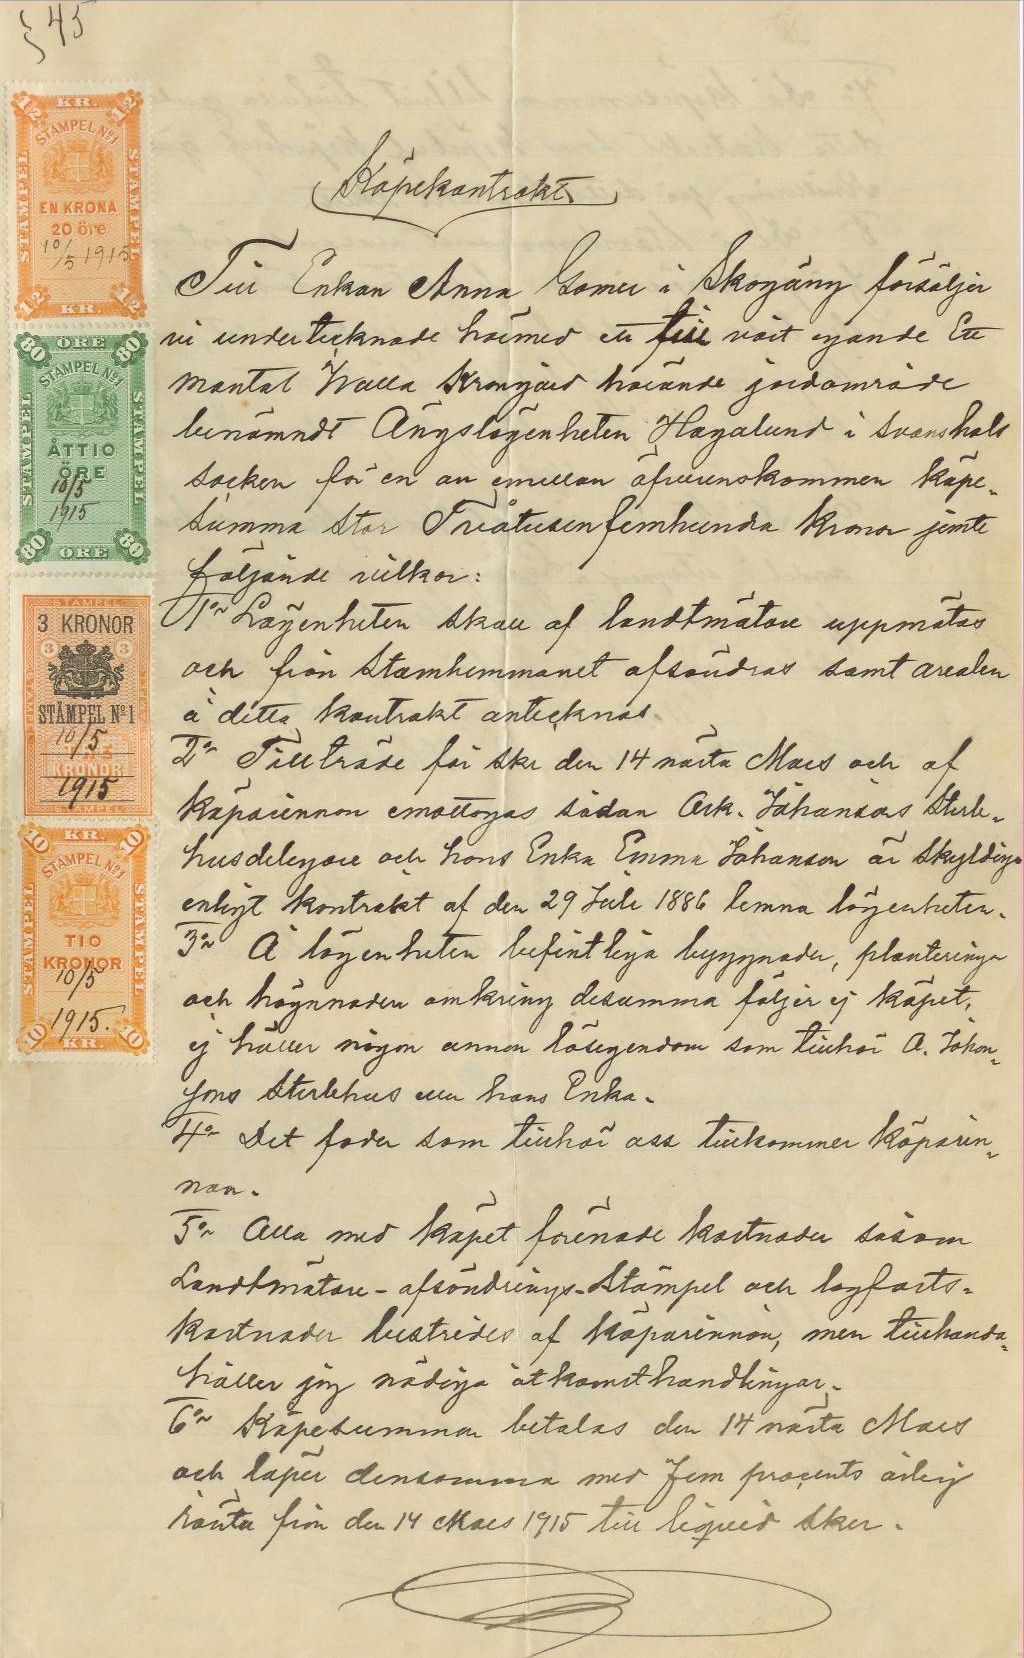 § 45
1,2 KR. 1,2
STÄMPEL No 1
STÄMPEL
STÄMPEL
EN KRONA
20 öre
10/5 1915
1,2 KR. 1,2
80 ÖRE 80
STÄMPEL No 1
STÄMPEL
STÄMPEL
ÅTTIO
ÖRE
10/5
1915
80 ÖRE 80
STÄMPEL
3 KRONOR
3 3
STÄMPEL No 1
10/5
KRONOR
1915
STÄMPEL
10 KR. 10
STÄMPEL No 1
STÄMPEL
STÄMPEL
TIO
KRONOR
10/5
1915.
10 KR. 10
Köpekontrakt
Till Enkan Anna Gomer i Skogäng försäljer
vi undertecknade härmed ett till vårt egande Ett
mantal Walla Kronogård hörande jordområde
benämndt Ängslägenheten Hagalund i Svanshals
socken för en oss emellan öfverenskommen köpe-
summa stor Tretusenfemhundra kronor jemte
följande vilkor:
1o Lägenheten skall af landtmätare uppmätas
och från Stamhemmanet afsöndras samt arealen
å detta kontrakt antecknas.
2o Tillträde får ske den 14 nästa Mars och af
köparinnan emottagas sådan Ark. Johansons Sterb-
husdelegare och hans Enka Emma Johanson är skyldiga
enligt kontrakt af den 29 Juli 1886 lemna lägenheten.
3o Å lägenheten befintliga byggnader, planteringar
och hägnaden omkring desamma följer ej köpet,
ej häller någon annan lösegendom som tillhör A. Johan-
sons Sterbhus eller hans Enka.
4o Det foder som tillhör oss tillkommer köparin-
nan.
5o Alla med köpet förenade kostnader såsom
Landtmätare-afsöndrings-Stämpel och lagfarts-
kostnader bestrides af köparinnan, men tillhanda-
håller jag nödiga åtkomsthandlingar.
6o Köpesumman betalas den 14 nästa Mars
och löper densamma med fem procents årlig
ränta från den 14 Mars 1915 till liqvid sker.